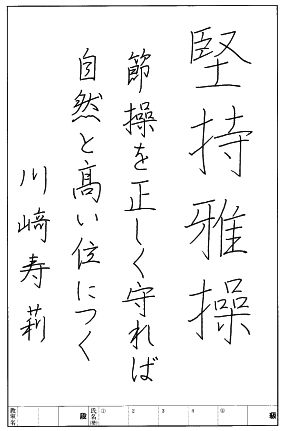 堅持雅操
節操を正しく守れば
自然と高い位につく
川﨑寿莉
級 ⑤ 4 3 2 ① 氏名(号) 段 教室名